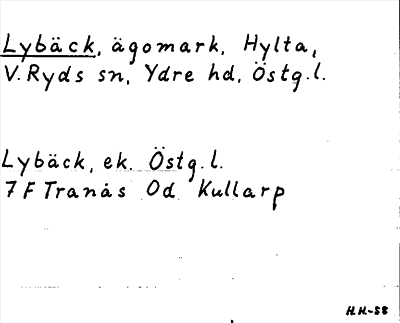 Lybäck, ägomark, Hylta,
V. Ryds sn, Ydre hd, Östg.l.
Lybäck, ek. Östg.l.
7 F Tranås Od Kullarp
H.H.-58